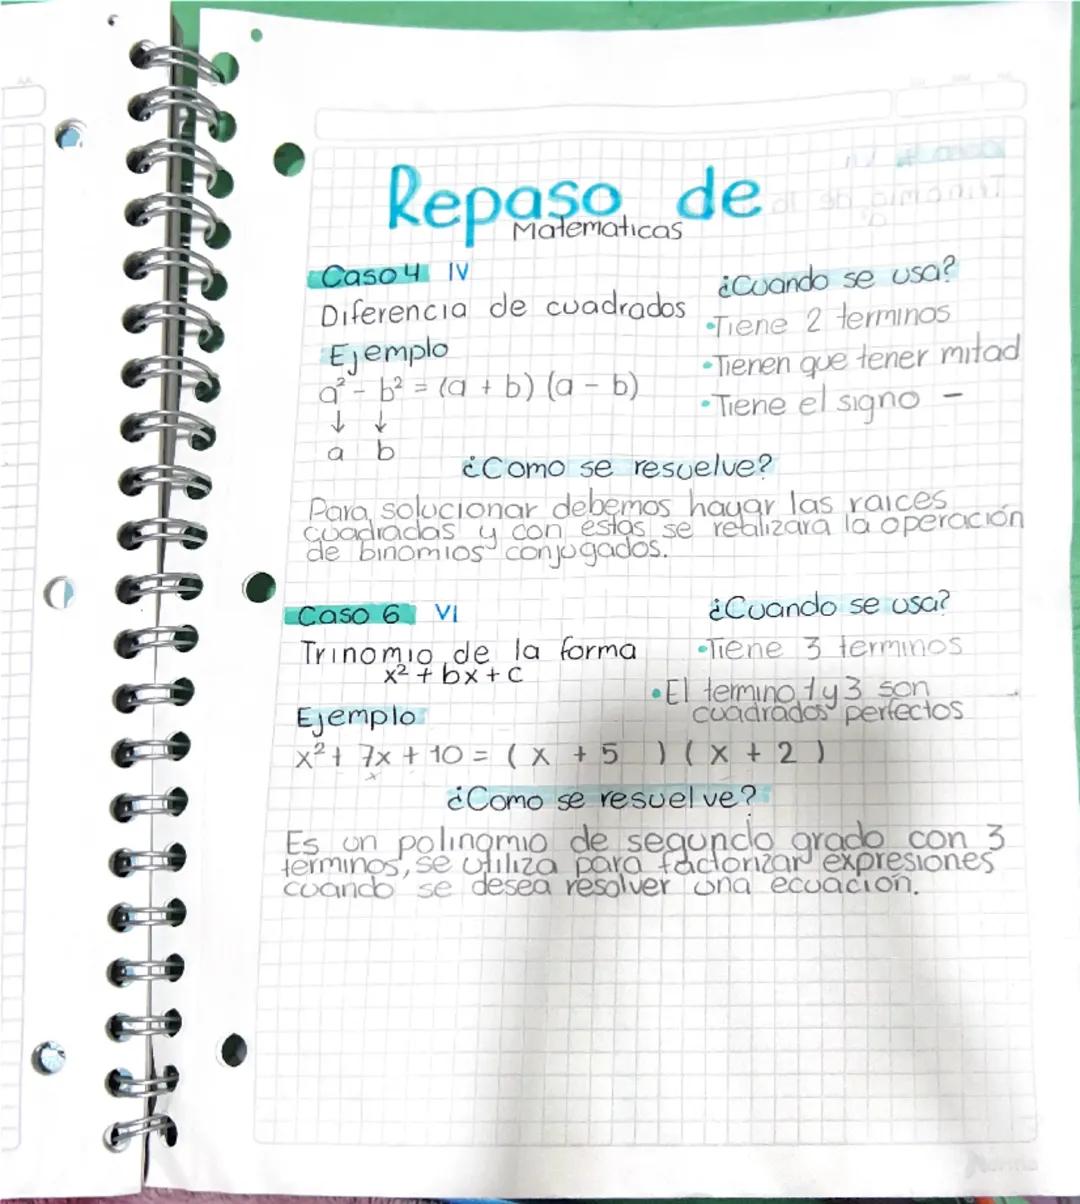 Repaso de
Matematicas
Caso 4 IV
Diferencia de cuadrados
Ejemplo
a² - b² = (a + b) (a - b)
↓ ↓
a b
¿Cuando se usa?
•Tiene 2 terminos
•Tienen que tener mitad
•Tiene el signo -
¿Como se resuelve?
Para solucionar debemos hayar las raices
cuadradas y con estas se realizara la operación
de binomios conjugados.
Caso 6 VI
Trinomio de la forma
x² + bx + c
¿Cuando se usa?
•Tiene 3 terminos
•El termino 1 y 3 son
cuadrados perfectos
Ejemplo
x² + 7x + 10 = ( x + 5 ) ( x + 2 )
x
¿Como se resuelve?
Es un polinomio de segundo grado con 3
terminos, se utiliza para factorizar expresiones
cuando se desea resolver una ecuación.